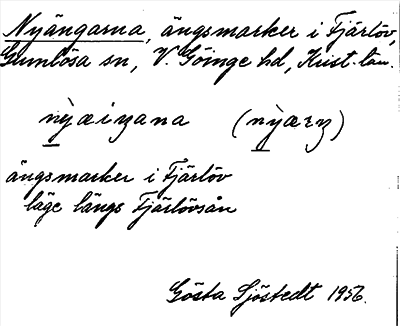 Nyängarna, ängsmarker i Fjärlöv,
Gumlösa sn, V. Göinge hd, Krist. län.
nỳæiꝫana (nỳærꝫ)
ängsmarker i Fjärlöv
läge längs Fjärlövsån
Gösta Sjöstedt 1956.